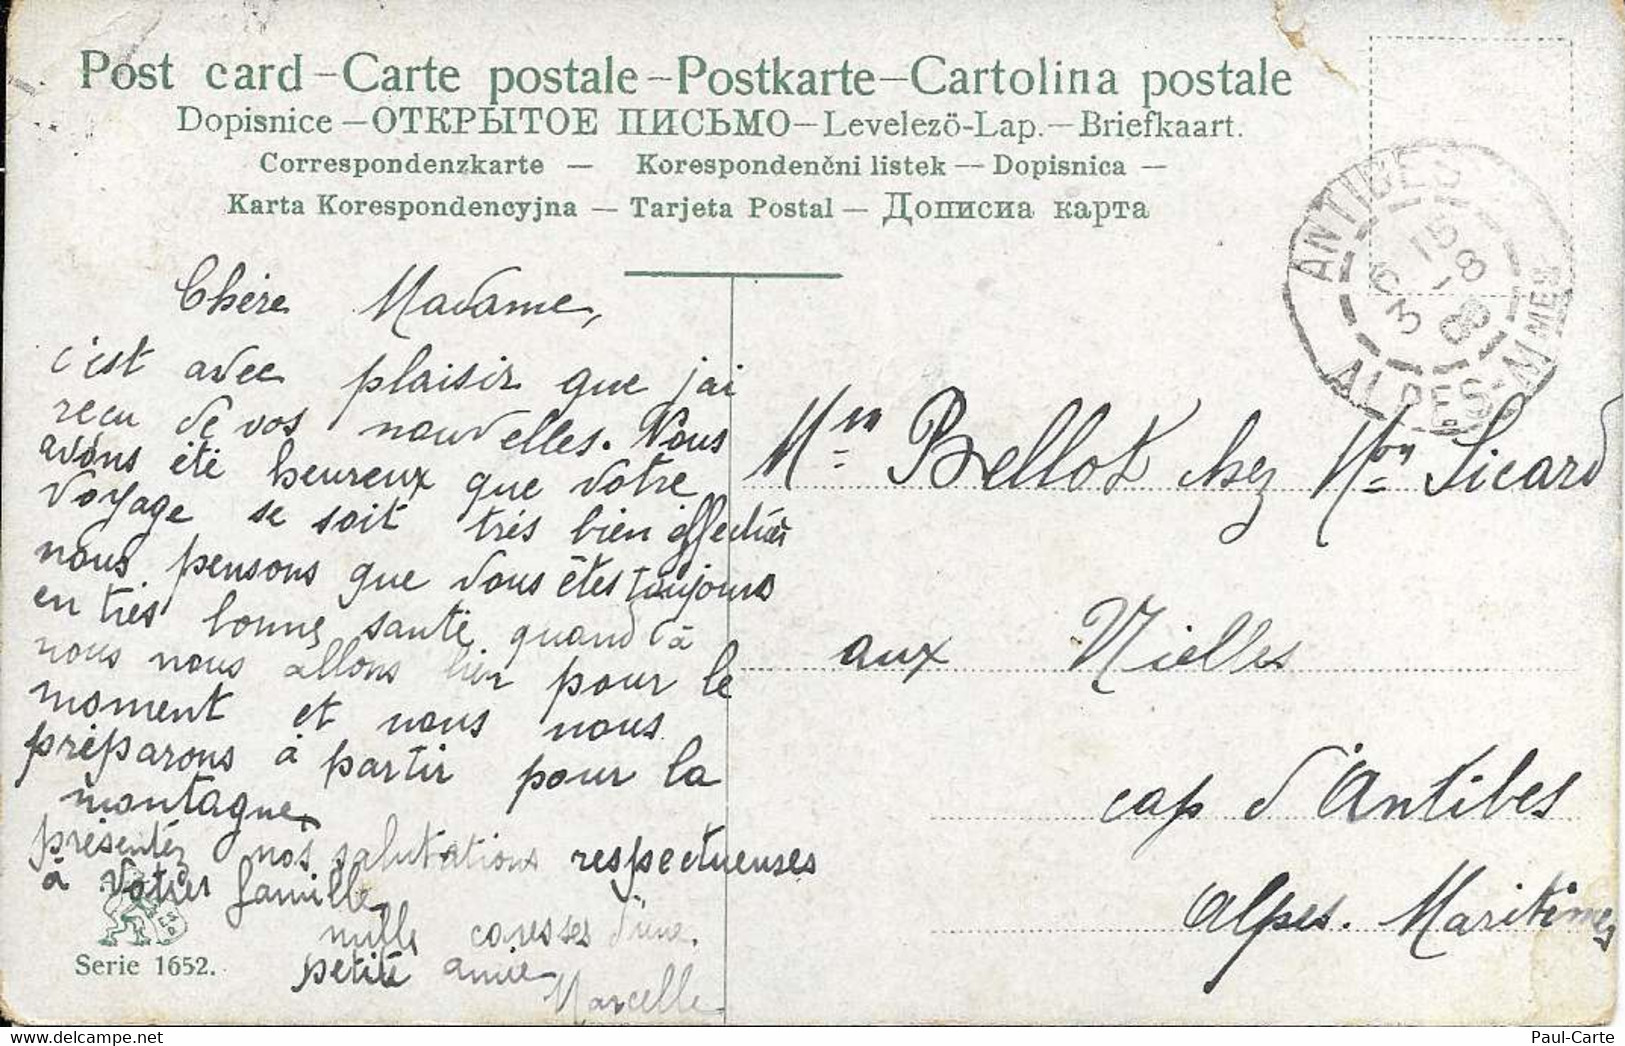 Post card – Carte postale – Postkarte – Cartolina postale
Dopisnice – ОТКРЫТОЕ ПИСЬМО – Levelezö-Lap. – Briefkaart.
Correspondenzkarte – Korespondenčni listek – Dopisnica –
Karta Korespondencyjna – Tarjeta Postal – Дописна карта
ANTIBES
15
5 -8
3 08
ALPES-MMES
Chère Madame,
c'est avec plaisir que jai
reçu de vos nouvelles. Nous
avons été heureux que votre
voyage se soit très bien éffectuér
nous pensons que vous êtes toujours
en très bonne santé, quand à
nous nous allons bien pour le
moment et nous nous
préparons à partir pour la
montagne
présentéz nos salutations respectueuses
à votre famille
mille caresses d'une
petite amie
Marcelle
Mme Bellot chez Mon Sicard
aux Nielles
cap d'Antibes
Alpes. Maritimes
Serie 1652.
Paul-Carte